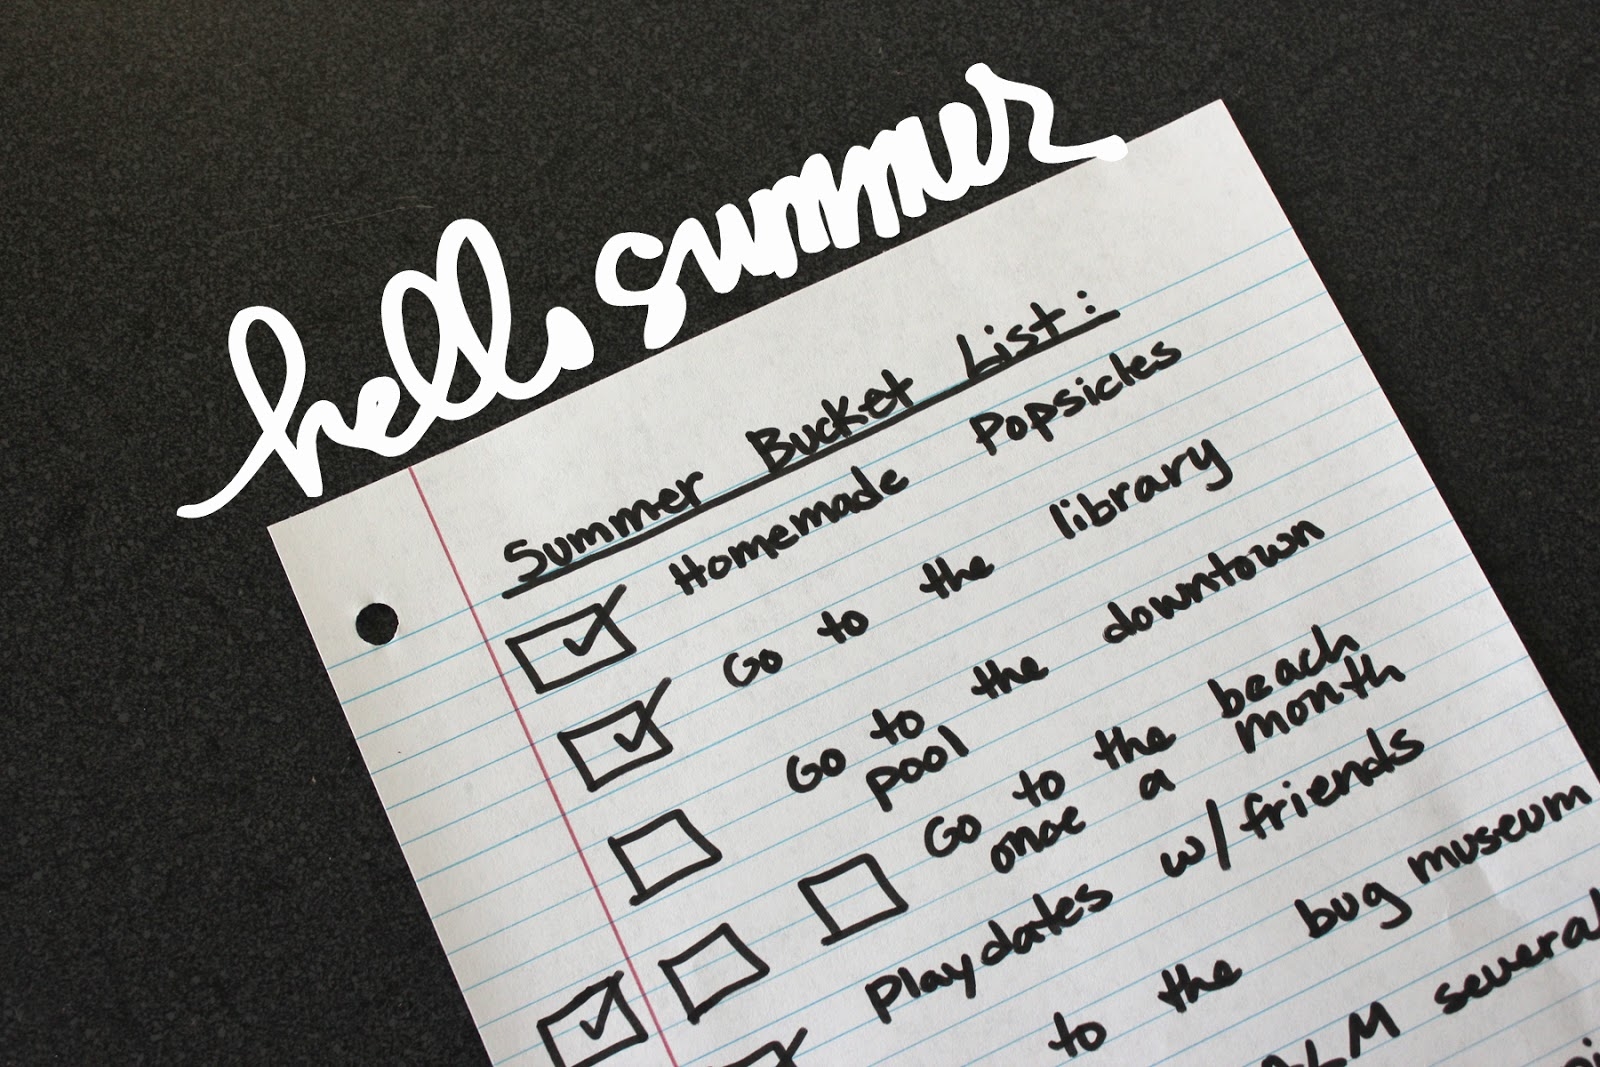 hello summer
Summer Bucket List:
Homemade Popsicles
Go to the library
Go to the downtown
pool
Go to the beach
once a month
Playdates w/friends
to the bug museum
ALM several